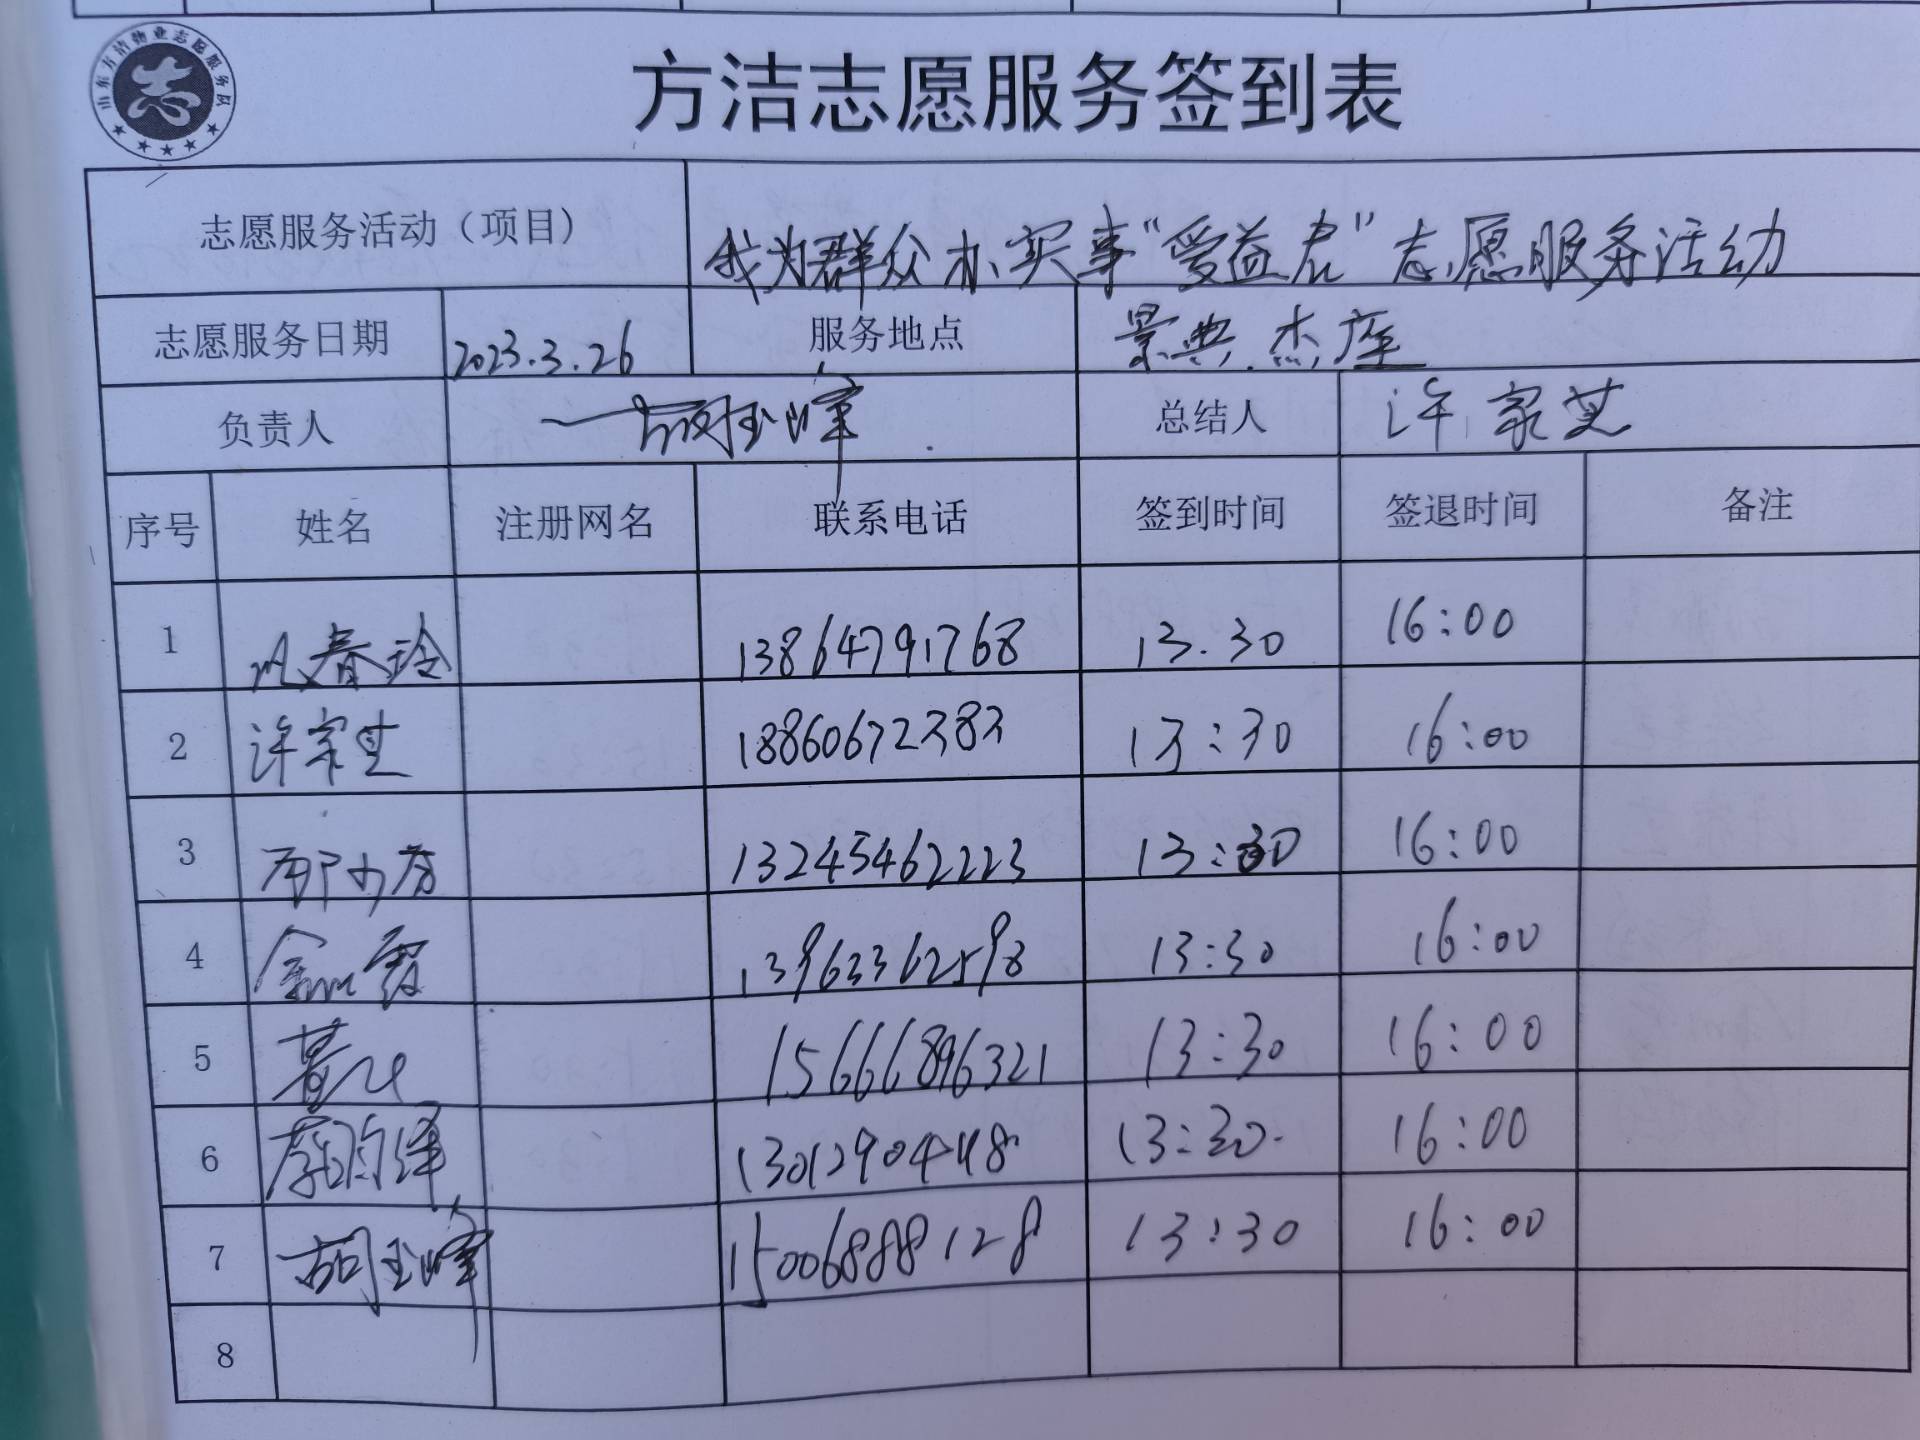 山东方洁物业志愿服务队
志
方洁志愿服务签到表
志愿服务活动（项目） 我为群众办实事“受益君”志愿服务活动
志愿服务日期 2023.3.26 服务地点 景典.杰座
负责人 胡玉峰 总结人 许家芝
序号 姓名 注册网名 联系电话 签到时间 签退时间 备注
1 春玲 13864791768 13.30 16:00
2 许家芝 18860672383 13:30 16:00
3 13245462223 13:30 16:00
4 13963362598 13:30 16:00
5 15666896321 13:30 16:00
6 13012904448 13:30 16:00
7 胡玉峰 15006888128 13:30 16:00
8